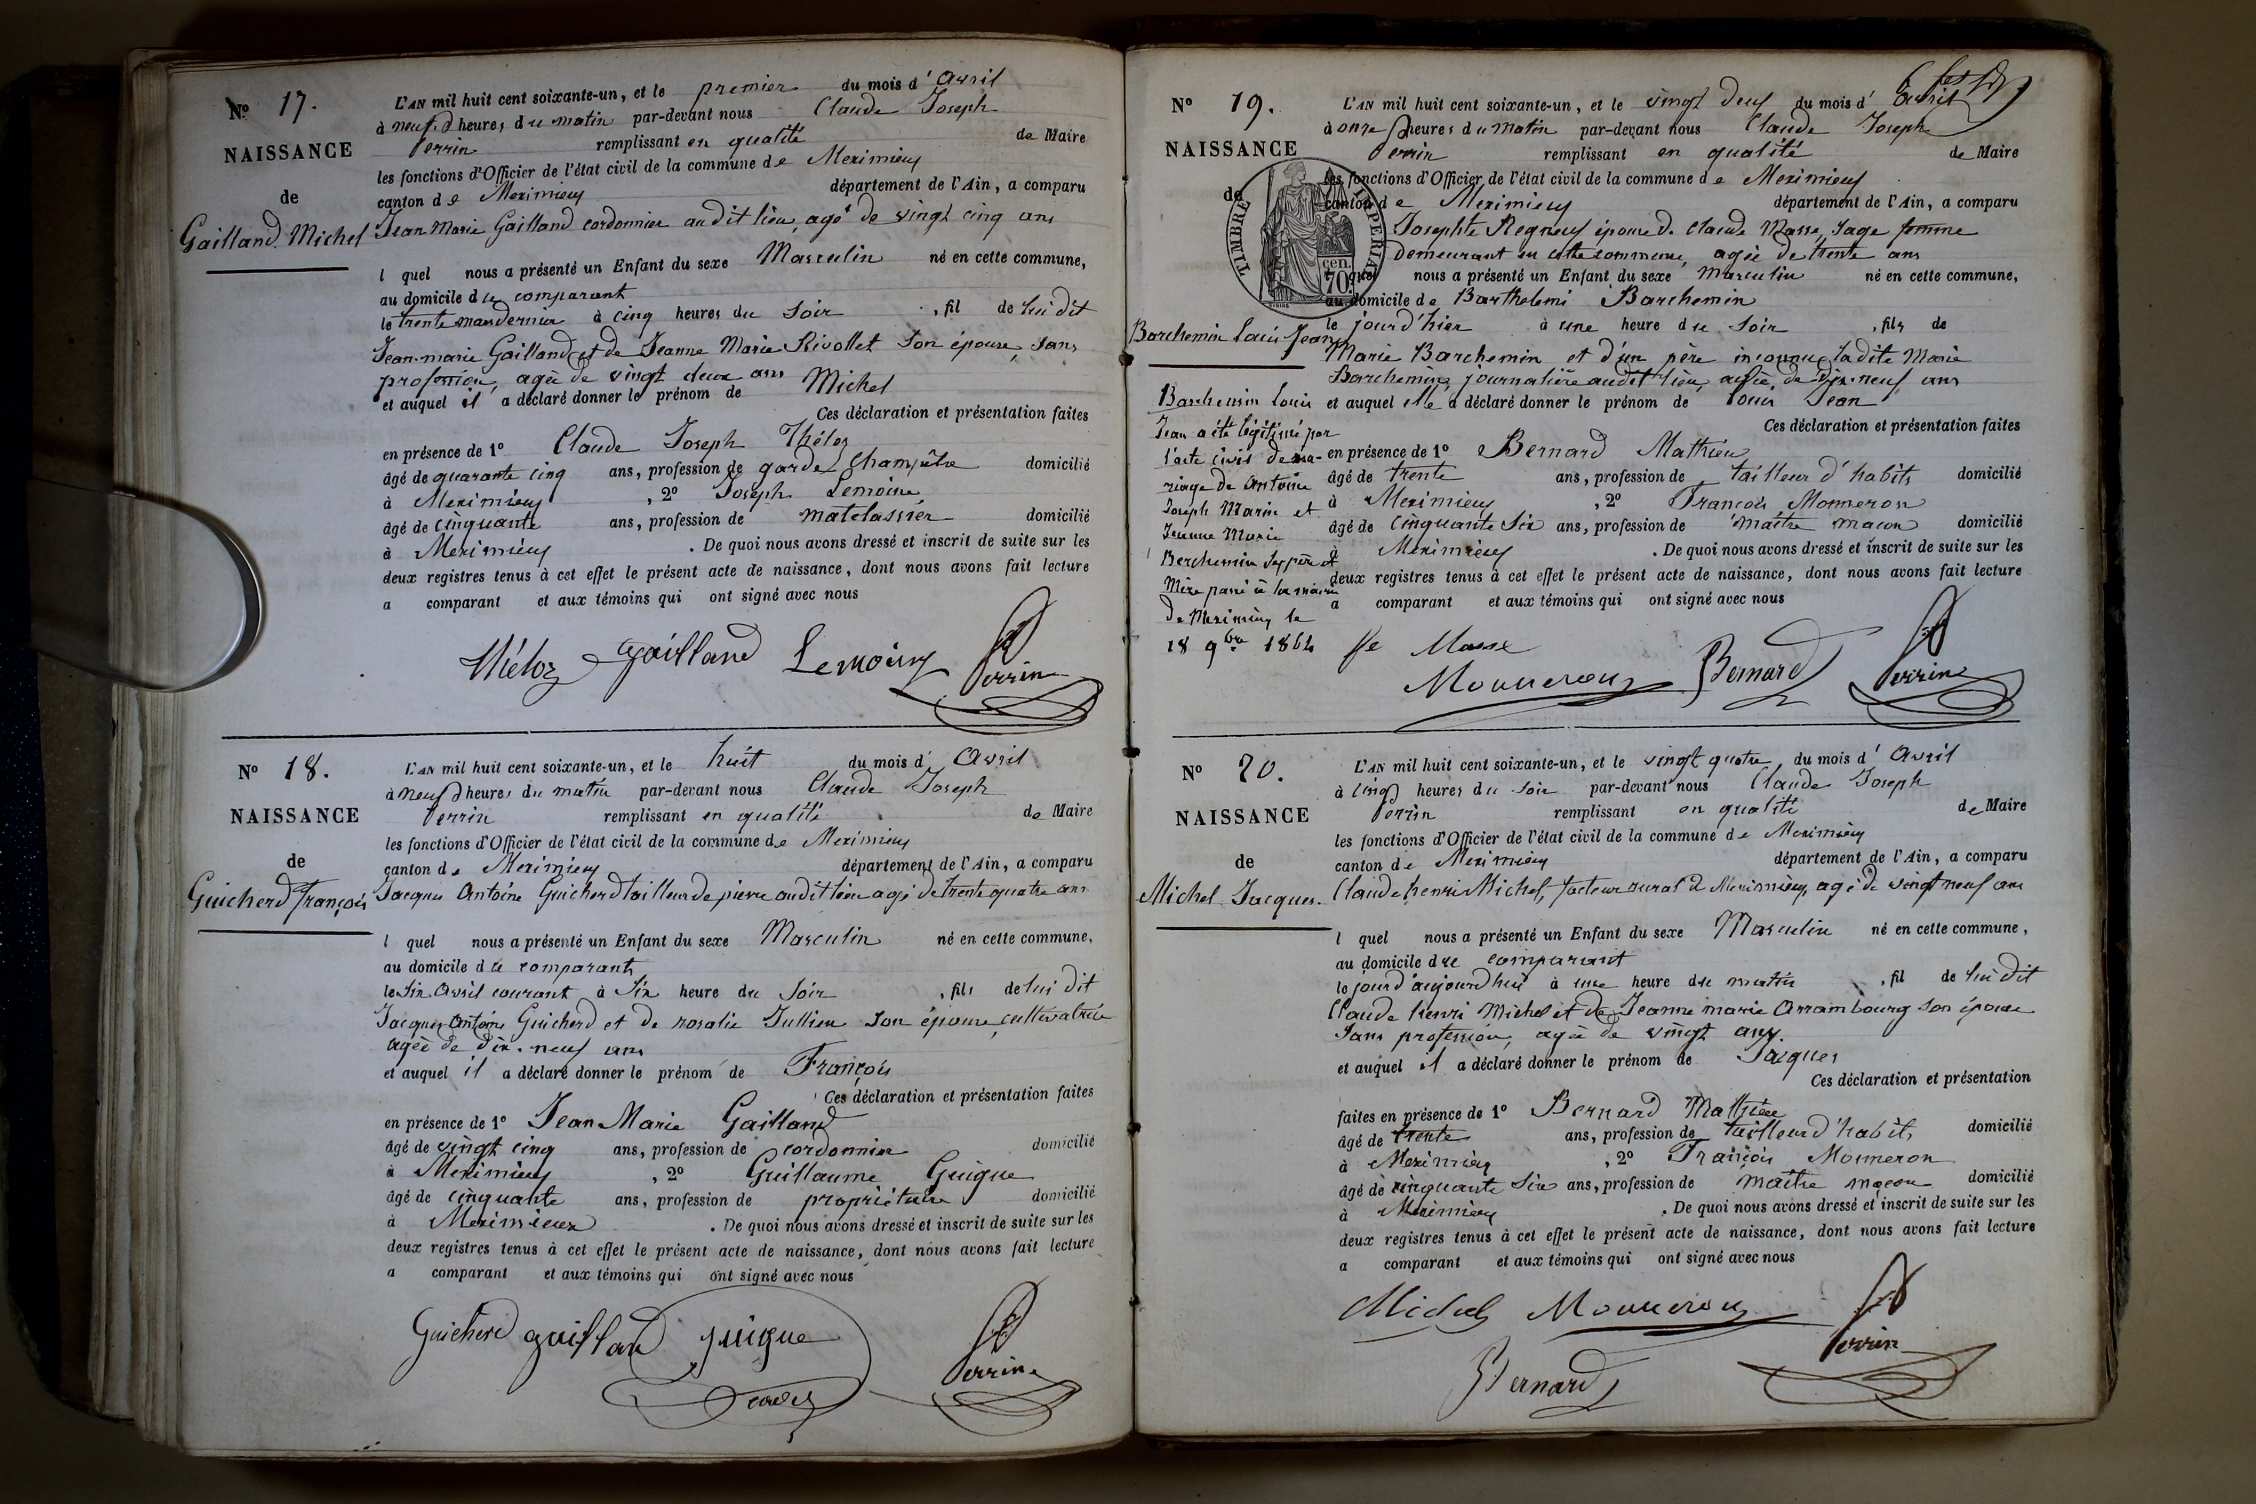 N° 17.
NAISSANCE
de
Gailland Michel
L'AN mil huit cent soixante-un, et le premier du mois d'Avril
à neuf heures du matin par-devant nous Claude Joseph
Perrin remplissant en qualité de Maire
les fonctions d'Officier de l'état civil de la commune de Meximieux
canton de Meximieux département de l'Ain, a comparu
Jean Marie Gailland cordonnier au dit lieu, agé de vingt cinq ans
l quel nous a présenté un Enfant du sexe Masculin né en cette commune,
au domicile du comparant
le trente mars dernier à cinq heures du soir , fil de lui dit
Jean-marie Gailland et de Jeanne Marie Rivollet son épouse, sans
profession, agée de vingt deux ans
et auquel il a déclaré donner le prénom de Michel
Ces déclaration et présentation faites
en présence de 1° Claude Joseph Théloz
âgé de quarante cinq ans, profession de garde champêtre domicilié
à Meximieux , 2° Joseph Lemoine
âgé de cinquante ans, profession de matelassier domicilié
à Meximieux . De quoi nous avons dressé et inscrit de suite sur les
deux registres tenus à cet effet le présent acte de naissance, dont nous avons fait lecture
a comparant et aux témoins qui ont signé avec nous
Théloz gailland Lemoine Perrin
N° 18.
NAISSANCE
de
Guicherd François
L'AN mil huit cent soixante-un, et le huit du mois d'Avril
à neuf heures du matin par-devant nous Claude Joseph
Perrin remplissant en qualité de Maire
les fonctions d'Officier de l'état civil de la commune de Meximieux
canton de Meximieux département de l'Ain, a comparu
Jacques Antoine Guicherd tailleur de pierre au dit lieu agé de trente quatre ans
l quel nous a présenté un Enfant du sexe Masculin né en cette commune,
au domicile du comparant
le Six Avril courant à Six heure du Soir , fils de lui dit
Jacques Antoine Guicherd et de rosalie Jullien son épouse, cultivatrice
agée de dix-neuf ans
et auquel il a déclaré donner le prénom de François
Ces déclaration et présentation faites
en présence de 1° Jean Marie Gailland
âgé de vingt cinq ans, profession de cordonnier domicilié
à Meximieux , 2° Guillaume Guigue
âgé de cinquante ans, profession de propriétaire domicilié
à Meximieux . De quoi nous avons dressé et inscrit de suite sur les
deux registres tenus à cet effet le présent acte de naissance, dont nous avons fait lecture
a comparant et aux témoins qui ont signé avec nous
Guicherd gailland guigue Perrin
N° 19.
NAISSANCE
de
TIMBRE IMPERIAL
70 cen.
Barchemin Louis Jean
Barchemin Louis
Jean a été légitimé par
l'acte civil de ma-
riage de Antoine
Joseph Marin et
Jeanne Marie
Berchemin ses père et
Mère passé à la mairie
de Meximieux le
18 9bre 1864
L'AN mil huit cent soixante-un, et le vingt deux du mois d'avril
à onze heures du matin par-devant nous Claude Joseph
Perrin remplissant en qualité de Maire
les fonctions d'Officier de l'état civil de la commune de Meximieux
canton de Meximieux département de l'Ain, a comparu
Josephte Regneux épouse de Claude Masse, sage femme
Demeurant en cette commune, agée de trente ans
l quel nous a présenté un Enfant du sexe masculin né en cette commune,
au domicile de Barthelemi Barchemin
le jour d'hier à une heure du soir , fils de
Marie Barchemin et d'un père inconnu, ladite Marie
Barchemin, journalière au dit lieu, agée de dix-neuf ans
et auquel elle a déclaré donner le prénom de Louis Jean
Ces déclaration et présentation faites
en présence de 1° Bernard Mathieu
âgé de trente ans, profession de tailleur d'habits domicilié
à Meximieux , 2° François Monneron
âgé de cinquante Six ans, profession de maître maçon domicilié
à Meximieux . De quoi nous avons dressé et inscrit de suite sur les
deux registres tenus à cet effet le présent acte de naissance, dont nous avons fait lecture
a comparant et aux témoins qui ont signé avec nous
fe Masse
Monneron Bernard Perrin
N° 20.
NAISSANCE
de
Michel Jacques.
L'AN mil huit cent soixante-un, et le vingt quatre du mois d'Avril
à cinq heures du soir par-devant nous Claude Joseph
Perrin remplissant en qualité de Maire
les fonctions d'Officier de l'état civil de la commune de Meximieux
canton de Meximieux département de l'Ain, a comparu
Claude henri Michel, facteur rural à Meximieux, agé de vingt neuf ans
l quel nous a présenté un Enfant du sexe Masculin né en cette commune,
au domicile du comparant
le jour d'aujourd'hui à une heure du matin , fil de lui dit
Claude henri Michel et de Jeanne marie Arrambourg son épouse
Sans profession, agée de vingt ans.
et auquel il a déclaré donner le prénom de Jacques
Ces déclaration et présentation
faites en présence de 1° Bernard Mathieu
âgé de trente ans, profession de tailleur d'habits domicilié
à Meximieux , 2° François Monneron
âgé de cinquante Six ans, profession de maître maçon domicilié
à Meximieux . De quoi nous avons dressé et inscrit de suite sur les
deux registres tenus à cet effet le présent acte de naissance, dont nous avons fait lecture
a comparant et aux témoins qui ont signé avec nous
Michel Monneron Perrin
Bernard